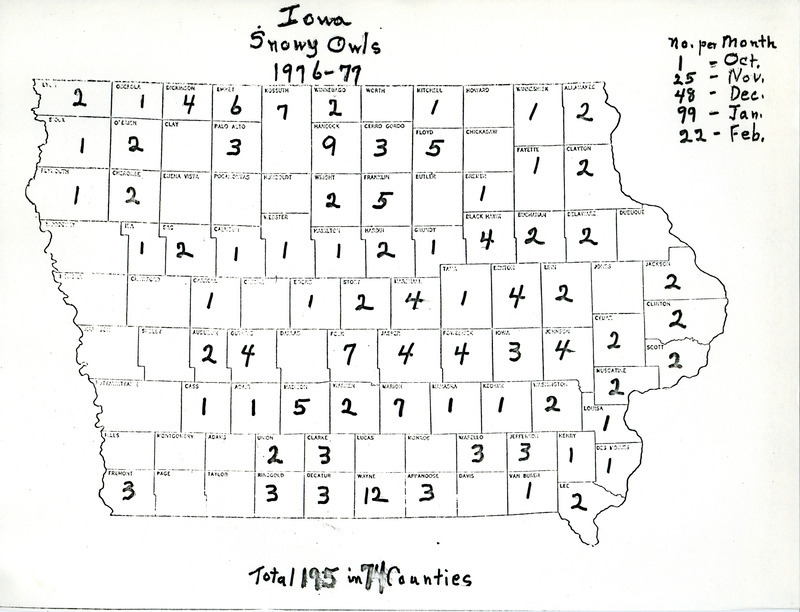 Iowa
Snowy Owls
1976-77
No. per Month
1 = Oct.
25 - Nov.
48 - Dec.
99 - Jan.
22 - Feb.
OSCEOLA DICKINSON EMMET KOSSUTH WINNEBAGO WORTH MITCHELL HOWARD WINNESHIEK ALLAMAKEE
2 1 4 6 7 2 1 1 2
SIOUX O'BRIEN CLAY PALO ALTO HANCOCK CERRO GORDO FLOYD CHICKASAW
1 2 3 9 3 5
FAYETTE CLAYTON
1 2
PLYMOUTH CHEROKEE BUENA VISTA POCAHONTAS HUMBOLDT WRIGHT FRANKLIN BUTLER BREMER
1 2 2 5 1
WOODBURY IDA SAC CALHOUN WEBSTER HAMILTON HARDIN GRUNDY BLACK HAWK BUCHANAN DELAWARE DUBUQUE
1 2 1 1 1 2 1 4 2 2
CRAWFORD CARROLL GREENE BOONE STORY MARSHALL TAMA BENTON LINN JONES JACKSON
1 1 2 4 1 4 2 2
CLINTON
2
SHELBY AUDUBON GUTHRIE DALLAS POLK JASPER POWESHIEK IOWA JOHNSON CEDAR SCOTT
2 4 7 4 4 3 4 2 2
MUSCATINE
2
POTTAWATTAMIE CASS ADAIR MADISON WARREN MARION MAHASKA KEOKUK WASHINGTON LOUISA
1 1 5 2 7 1 1 2 1
MILLS MONTGOMERY ADAMS UNION CLARKE LUCAS MONROE WAPELLO JEFFERSON HENRY DES MOINES
2 3 3 3 1 1
FREMONT PAGE TAYLOR RINGGOLD DECATUR WAYNE APPANOOSE DAVIS VAN BUREN LEE
3 3 3 12 3 1 2
Total 195 in 74 Counties